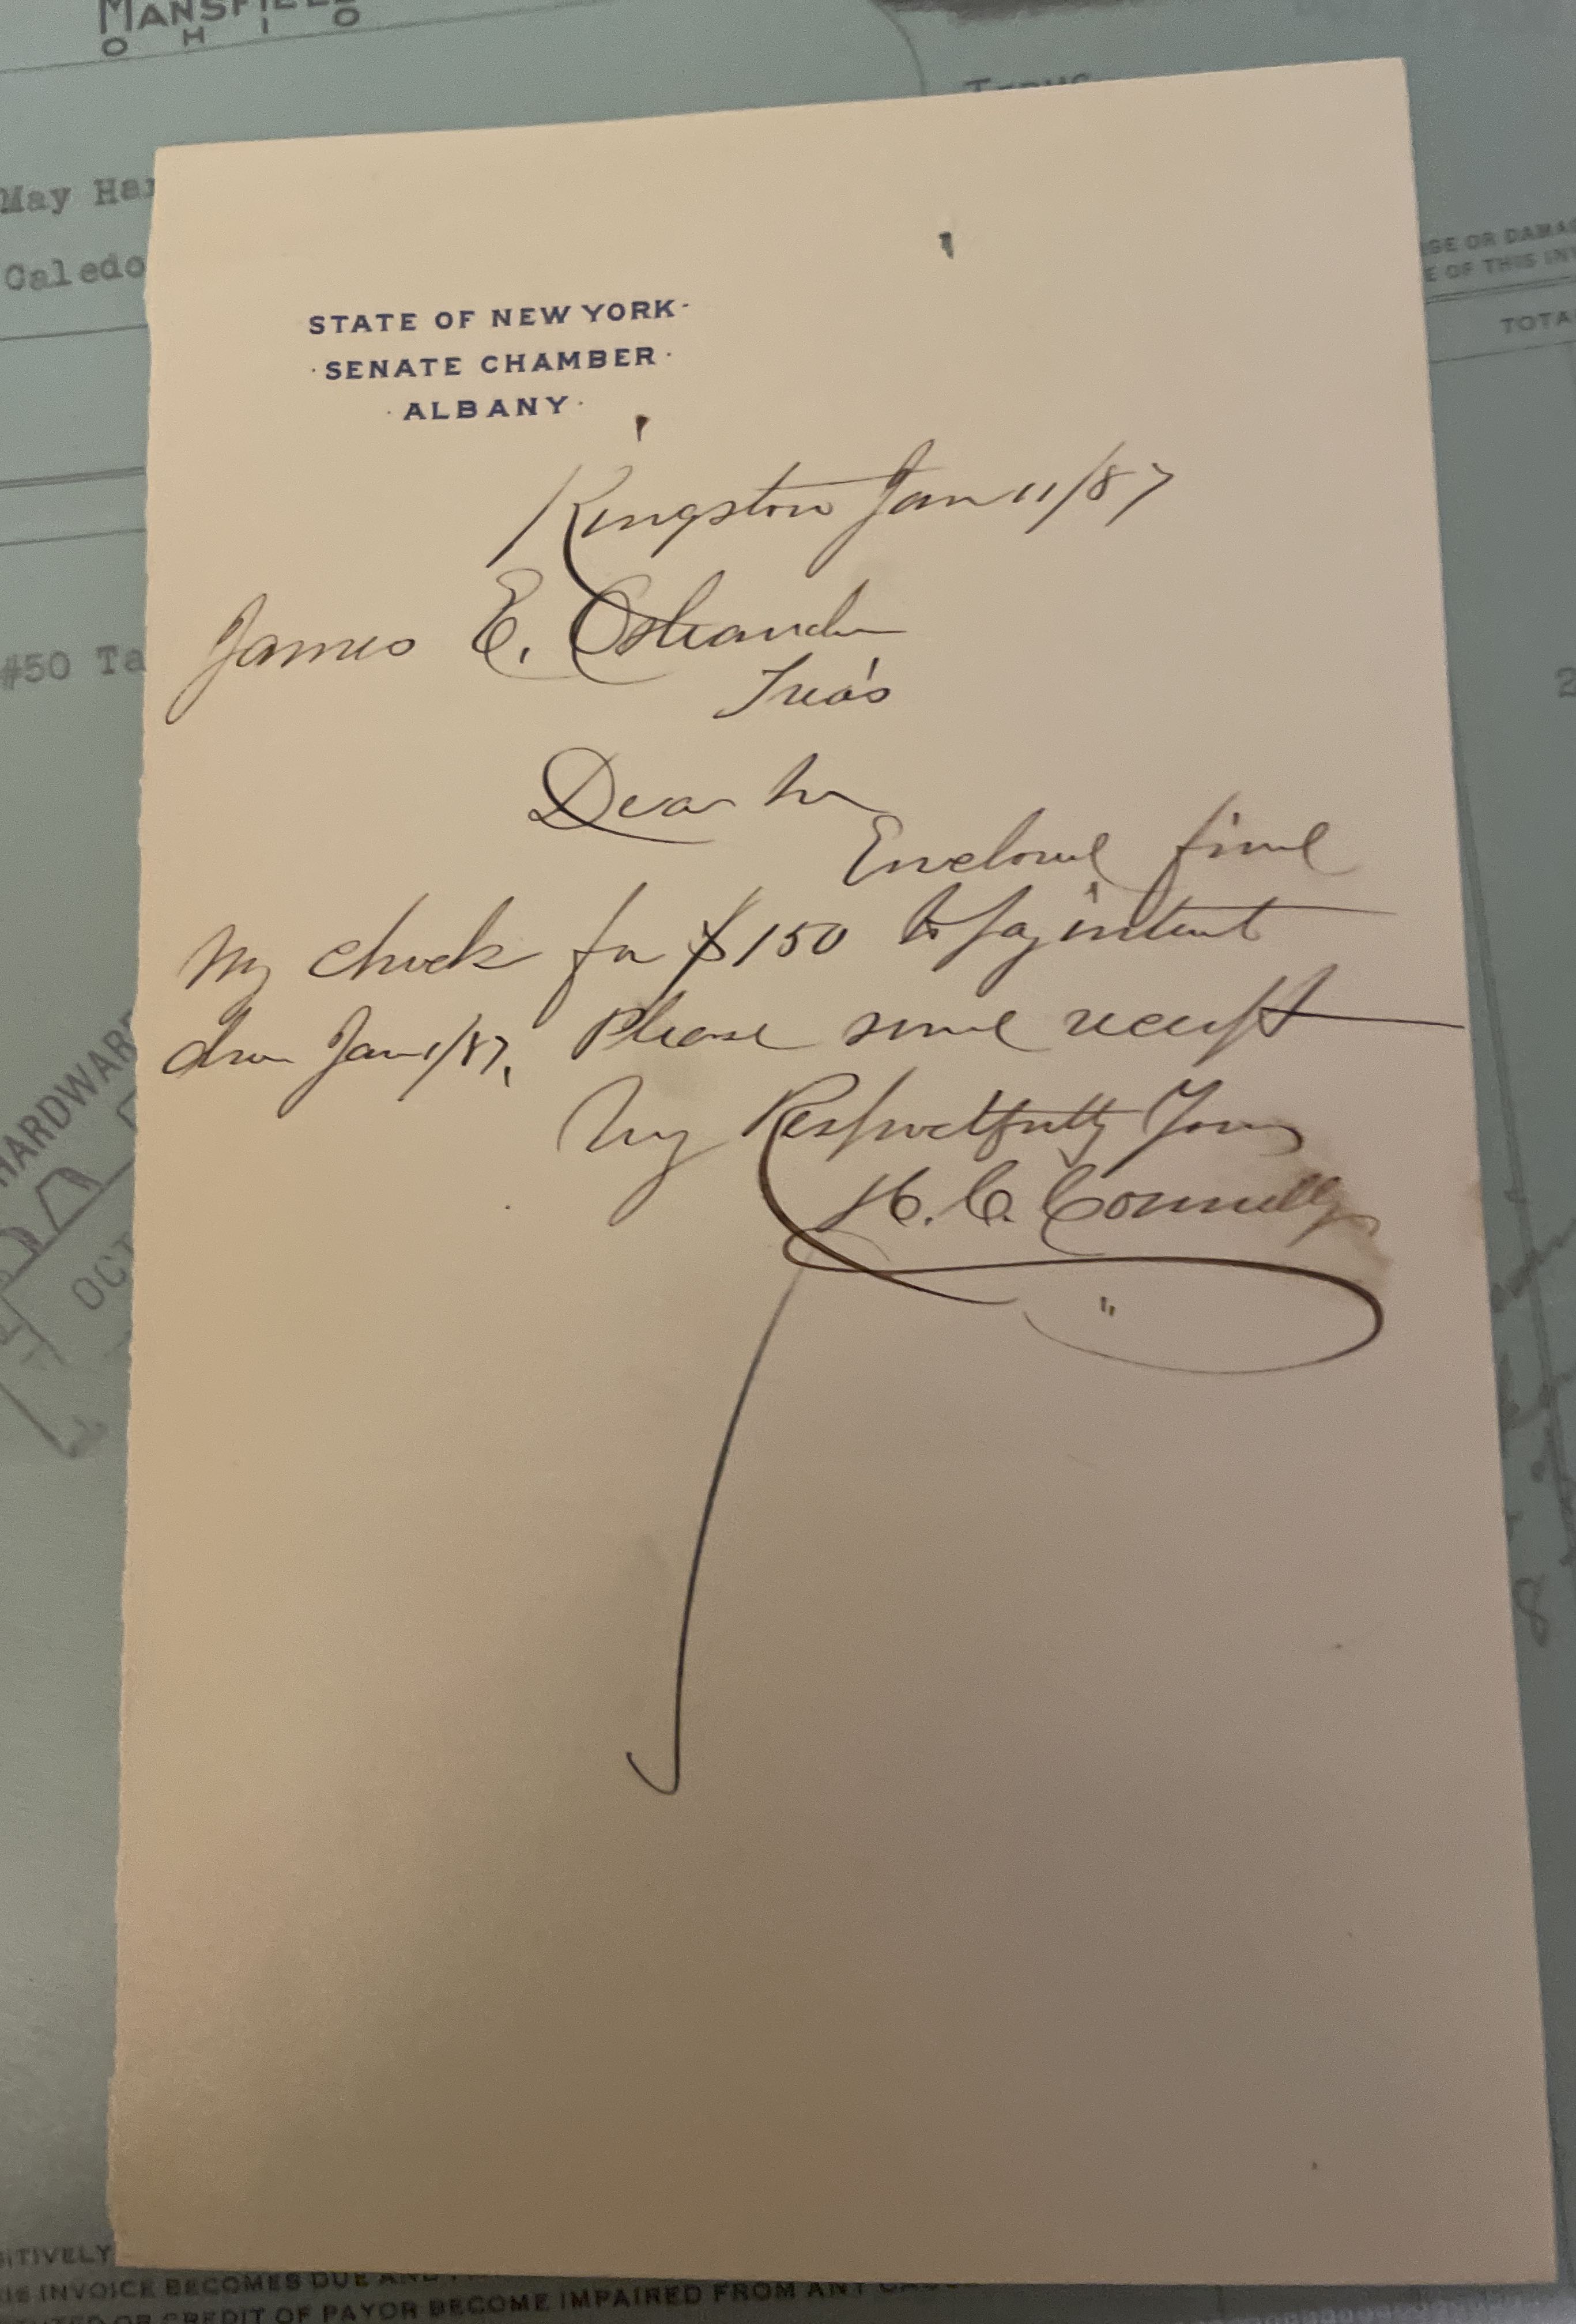 MANSFIEL
OHIO
TERMS
May Har
Caledo
GE OR DAMAG
E OF THIS INV
TOTA
STATE OF NEW YORK
SENATE CHAMBER
ALBANY
Kingston Jan 11/87
#50 Ta
2
James E. Ostrander
Treas
Dear Sir
Enclosed find
My check for $150 to pay interest
due Jan 1/87. Please send receipt
Very Respectfully Yours
H. C. Connelly
HARDWARE
OCT
8
SITIVELY
INVOICE BECOMES DUE AND
OR CREDIT OF PAYOR BECOME IMPAIRED FROM ANY CAUS